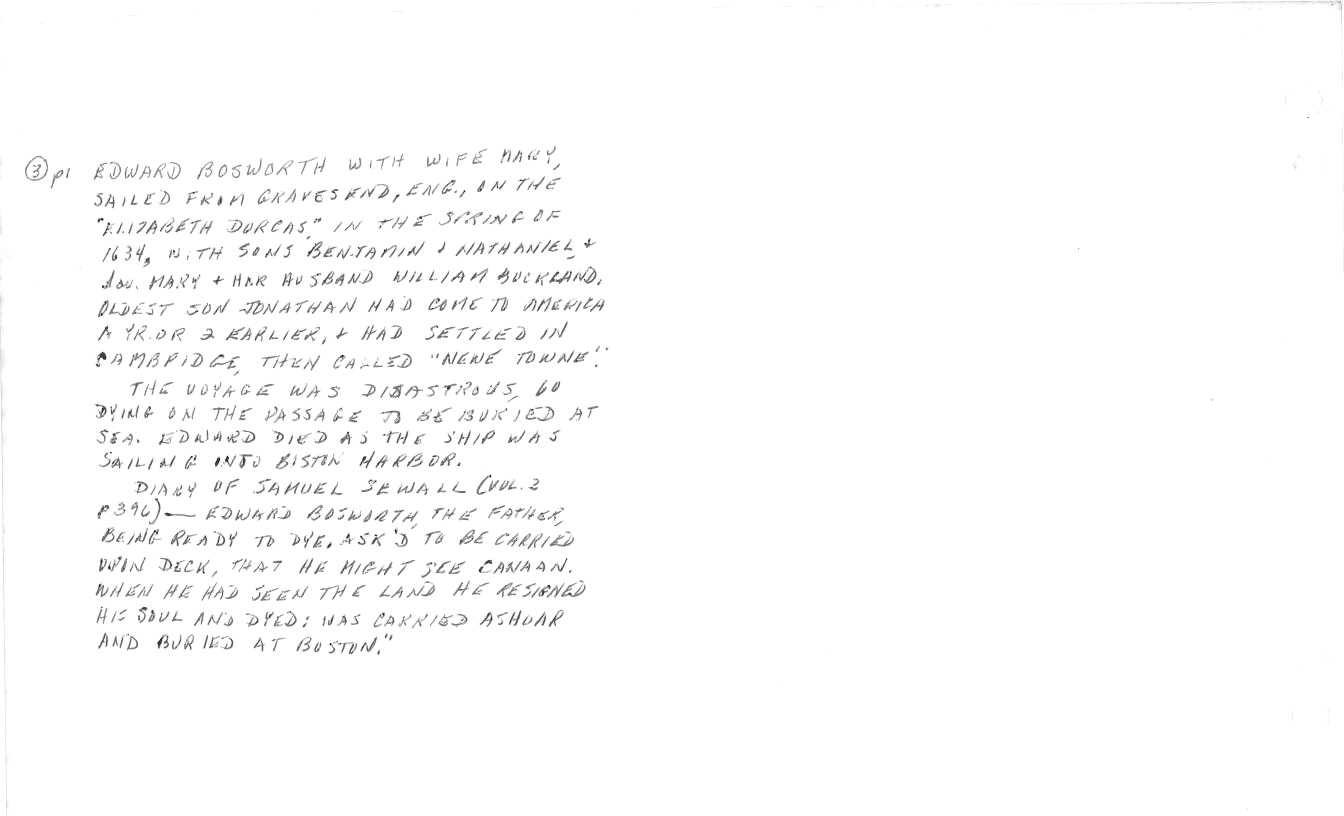 ③ p1 EDWARD BOSWORTH WITH WIFE MARY,
SAILED FROM GRAVESEND, ENG., ON THE
"ELIZABETH DORCAS," IN THE SPRING OF
1634, WITH SONS BENJAMIN & NATHANIEL, +
dau. MARY + HER HUSBAND WILLIAM BUCKLAND.
OLDEST SON JONATHAN HAD COME TO AMERICA
A YR. OR 2 EARLIER, + HAD SETTLED IN
CAMBRIDGE, THEN CALLED "NEWE TOWNE".
THE VOYAGE WAS DISASTROUS, 60
DYING ON THE PASSAGE TO BE BURIED AT
SEA. EDWARD DIED AS THE SHIP WAS
SAILING INTO BOSTON HARBOR.
DIARY OF SAMUEL SEWALL (VOL. 2
P 396) — EDWARD BOSWORTH, THE FATHER,
BEING READY TO DYE, ASK'D TO BE CARRIED
UPON DECK, THAT HE MIGHT SEE CANAAN.
WHEN HE HAD SEEN THE LAND HE RESIGNED
HIS SOUL AND DYED; WAS CARRIED ASHOAR
AND BURIED AT BOSTON."